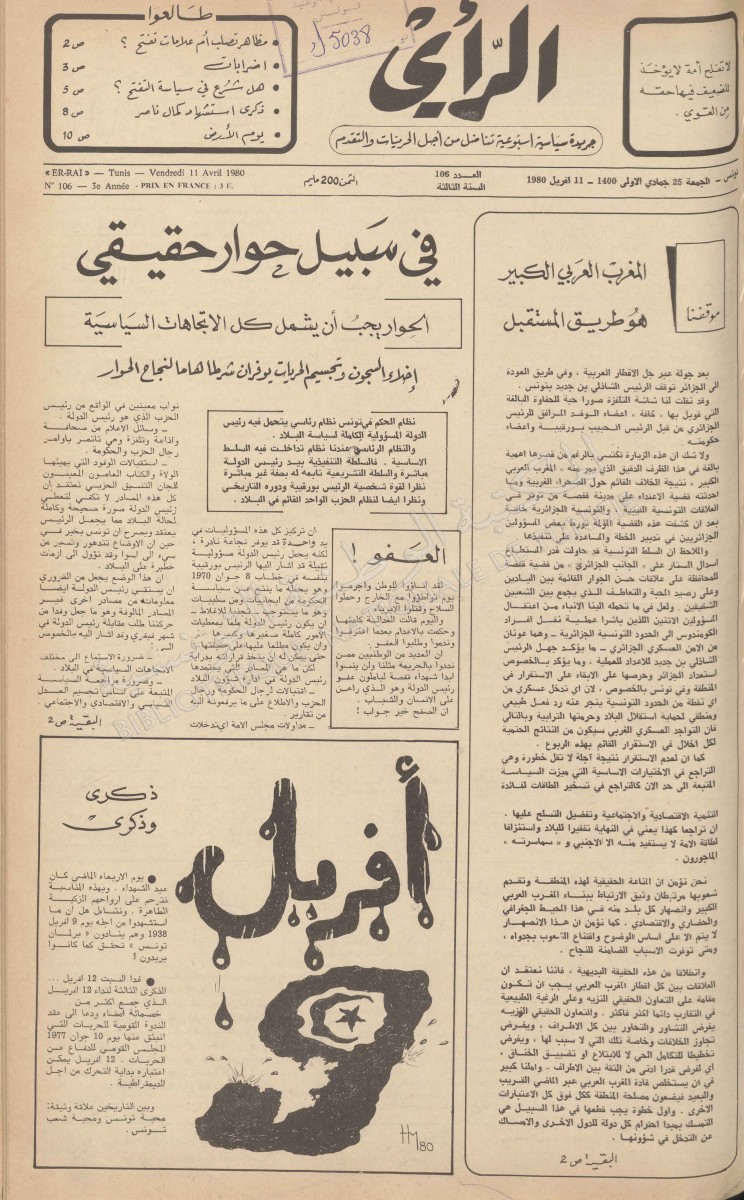 طالعوا
مظاهر تصلب أم علامات تفتح ؟ ص 2
اضرابات ص 3
هل شرع في سياسة التفتح ؟ ص 5
ذكرى استشهاد كمال ناصر ص 8
يوم الأرض ص 10
5038
الرأي
جريدة سياسية اسبوعية تناضل من أجل الحريات والتقدم
لا تفلح أمة لا يؤخذ
للضعيف فيها حقه
من القوي .
« ER-RAI » — Tunis — Vendredi 11 Avril 1980
N° 106 — 3e Année - PRIX EN FRANCE : 3 F.
الثمن 200 مليم
العدد 106
السنة الثالثة
تونس - الجمعة 25 جمادي الاولى 1400 - 11 افريل 1980
موقفنا
المغرب العربي الكبير
هو طريق المستقبل
بعد جولة عبر جل الاقطار العربية ، وفي طريق العودة
الى الجزائر توقف الرئيس الشاذلي بن جديد بتونس .
وقد نقلت لنا شاشة التلفزة صورا حية للحفاوة البالغة
التي قوبل بها « كافة » اعضاء الوفد المرافق للرئيس
الجزائري من قبل الرئيس الحبيب بورقيبة واعضاء
حكومته
ولا شك ان هذه الزيارة تكتسي بالرغم من قصرها اهمية
بالغة في هذا الظرف الدقيق الذي
الكبير » نتيجة الخلاف القائم حول الصحراء الغربية وما
احدثته قضية الاعتداء على مدينة قفصة من توتر في
العلاقات التونسية الليبية ، والتونسية الجزائرية خاصة
بعد ان كشفت هذه القضية المؤلمة تورط بعض المسؤولين
الجزائريين في تدبير الخطة والمساعدة على تنفيذها
والملاحظ ان السلط التونسية قد حاولت قدر المستطاع
اسدال الستار على « الجانب الجزائري » من قضية قفصة
للمحافظة على علاقات حسن الجوار القائمة بين البلدين
وعلى رصيد المحبة والتعاطف الذي يجمع بين الشعبين
الشقيقين . ولعل في ما تحمله الينا الانباء من اعتقال
المسؤولين الاثنين اللذين باشرا عملية نقل افراد
الكومندوس الى الحدود التونسية الجزائرية - وهما عونان
من الامن العسكري الجزائري - ما يؤكد جهل الرئيس
الشاذلي بن جديد للاعداد للعملية ، وما يؤكد بالخصوص
استعداد الجزائر وحرصها على الابقاء على الاستقرار في
المنطقة وفي تونس بالخصوص ، لان اي تدخل عسكري من
اي نقطة من الحدود التونسية ينجر عنه رد فعل طبيعي
ومنطقي لحماية استقلال البلاد وحرمتها الترابية وبالتالي
فان التواجد العسكري الغربي سيكون من النتائج الحتمية
لكل اخلال في الاستقرار القائم بهذه الربوع .
كما ان لعدم الاستقرار نتيجة آجلة لا تقل خطورة وهي
التراجع في الاختيارات الاساسية التي ميزت السياسة
المتبعة الى حد الان كالتراجع في تسخير الطاقات لفائدة
التنمية الاقتصادية والاجتماعية وتفضيل التسلح عليها .
ان تراجعا كهذا يعني في النهاية تفقيرا للبلاد واستنزافا
لطاقة الامة لا يستفيد منه الا الاجنبي و « سماسرته »
الماجورون .
نحن نؤمن ان المناعة الحقيقية لهذه المنطقة وتقدم
شعوبها مرتبطان وثيق الارتباط ببناء المغرب العربي
الكبير وانصهار كل بلد منه في هذا المحيط الجغرافي
والحضاري والاقتصادي . كما نؤمن ان هذا الانصهار
لا يتم الا على اساس الوضوح واقتناع الشعوب بجدواه ،
ومتى توفرت الاسباب الضامنة للنجاح .
وانطلاقا من هذه الحقيقة البديهية ، فاننا نعتقد ان
العلاقات بين كل اقطار المغرب العربي يجب ان تكون
مقامة على التعاون الحقيقي النزيه وعلى الرغبة الطبيعية
في التقارب دائما اكثر فاكثر . والتعاون الحقيقي النزيه
يفرض التشاور والتحاور بين كل الاطراف ، ويفرض
تجاوز الخلافات وخاصة تلك التي لا سبب لها ، ويفرض
تخطيطا للتكامل الحي لا للابتلاع او تضييق الخناق ،
اي لفرض قدرا ادنى من الثقة بين الاطراف . واملنا كبير
في ان يستخلص قادة المغرب العربي عبر الماضي القريب
والبعيد فيضعون مصلحة المنطقة ككل فوق كل الاعتبارات
الاخرى . واول خطوة يجب قطعها في هذا السبيل هي
التمسك بمبدا احترام كل دولة للدول الاخرى والامساك
عن التدخل في شؤونها .
البقية : ص 2
في سبيل حوار حقيقي
الحوار يجب أن يشمل كل الاتجاهات السياسية
إخلاء السجون وتجسيم الحريات يوفران شرطا هاما لنجاح الحوار
نظام الحكم في تونس نظام رئاسي يتحمل فيه رئيس
الدولة المسؤولية الكاملة لسياسة البلاد .
والنظام الرئاسي عندنا نظام تداخلت فيه السلط
الاساسية . فالسلطة التنفيذية بيد رئيس الدولة
مباشرة والسلطة التشريعية تابعة له بصفة غير مباشرة
نظرا لقوة شخصية الرئيس بورقيبة ودوره التاريخي
ونظرا ايضا لنظام الحزب الواحد القائم في البلاد .
ان تركيز كل هذه المسؤوليات في
يد واحدة قد يوفر نجاعة نادرة ،
لكنه يحمل رئيس الدولة مسؤولية
ثقيلة قد اشار اليها الرئيس بورقيبة
بنفسه في خطاب 8 جوان 1970
وهو يحمله ما ينتج عن سياسة
الحكومة من ايجابيات ومن سلبيات
وهو ما يستوجب - تجنبا للاغلاط -
ان يكون رئيس الدولة ملما بمعطيات
الامور كاملة صغيرها وكبيرها
وان يكون مطلعا عليها على حقيقتها
حتى يمكن له ان يتخذ قراراته بدراية
لكن ما هي المصادر التي يعتمدها
رئيس الدولة في ادارة شؤون البلاد
- اقتبالات لرجال الحكومة ورجال
الحزب والاطلاع على ما يرفعونه اليه
من تقارير .
- مداولات مجلس الامة اي تدخلات
نواب معينين في الواقع من رئيس
الحزب الذي هو رئيس الدولة .
- وسائل الاعلام من صحافة
واذاعة وتلفزة وهي تاتمر باوامر
رجال الحزب والحكومة .
- استقبالات الوفود التي يهيئها
الولاة والكتاب العامون المعينون
للجان التنسيق الحزبي نعتقد ان
كل هذه المصادر لا تكفي لتعطي
لرئيس الدولة صورة صحيحة وكاملة
لحالة البلاد مما يجعل الرئيس
يعتقد ويصرح ان تونس بخير في
حين ان الاوضاع تتدهور وتسير من
سيء الى اسوا وقد تؤول الى ازمات
خطيرة على البلاد .
ان هذا الوضع يجعل من الضروري
ان يستقي رئيس الدولة ايضا
معلوماته من مصادر اخرى غير
المصادر المالوفة وهو ما جعل وفدا من
حركتنا طلب مقابلة رئيس الدولة في
شهر فيفري وقد اشار اليه بالخصوص
الى :
- ضرورة الاستماع الى مختلف
الاتجاهات السياسية في البلاد .
- وضرورة مراجعة السياسة
المتبعة على اساس تجسيم العدل
السياسي والاقتصادي والاجتماعي .
البقية : ص 2
العفو !
لقد اساؤوا للوطن واجرموا
يوم تواطؤوا مع الخارج وحملوا
السلاح وقتلوا الابرياء .
واليوم قالت العدالة كلمتها
وحكمت بالاعدام بعدما اعترفوا
وندموا وطلبوا العفو .
ان العديد من الوطنيين ممن
نددوا بالجريمة مثلنا ولن ينسوا
ابدا شهداء قفصة لياملون عفو
رئيس الدولة وهو الذي راهن
على الانسان والشباب .
ان الصفح خير جواب !
ذكرى
وذكرى
● يوم الاربعاء الماضي كان
عيد الشهداء . وبهذه المناسبة
نترحم على ارواحهم الزكية
الطاهرة . ونتساءل هل ان ما
استشهدوا من اجله يوم 9 افريل
1938 وهم ينادون « برلمان
تونسي » تحقق كما كانوا
يريدون ؟
● غدا السبت 12 افريل ...
الذكرى الثالثة لنداء 12 افريل
الذي جمع اكثر من
خمسمائة امضاء ودعا الى عقد
الندوة القومية للحريات التي
انبثق عنها يوم 10 جوان 1977
المجلس القومي للدفاع عن
الحريات . 12 افريل يمكن
اعتباره بداية التحرك من اجل
الديمقراطية .
وبين التاريخين علاقة وثيقة:
محبة تونس ومحبة شعب
تونس .
أفريل
9
HM 80